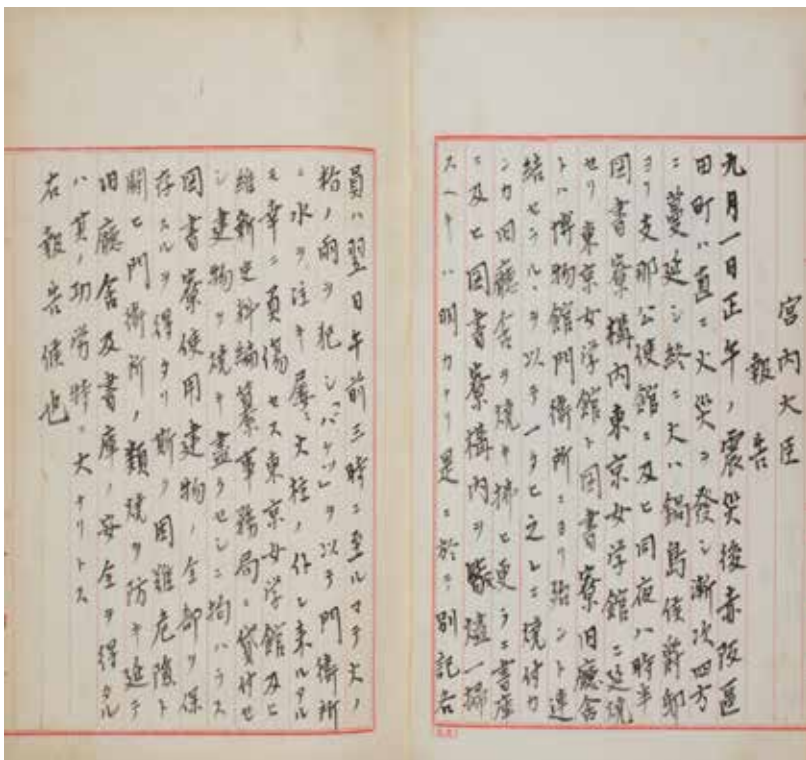 宮内大臣
報告
九月一日正午ノ震災後赤阪区
田町ハ直ニ火災ヲ發シ漸次四方
ニ蔓延シ終ニ火ハ鍋島侯爵邸
ヨリ支那公使館ニ及ヒ同夜八時半
図書寮構内東京女学館ニ延焼
セリ東京女学館ト図書寮旧廳舎
トハ博物館門衛所ニヨリ殆ント連
結セラルヽヲ以テ一タヒ之レニ焼付カ
ンカ旧廳舎ヲ焼キ拂ヒ更ラニ書庫
ニ及ヒ図書寮構内ヲ燼一掃
スヘキハ明カナリ是ニ於テ別記吉
員ハ翌日午前三時ニ至ルマテ火ノ
粉ノ雨ヲ犯シ「バケツ」ヲ以テ門衛所
ニ水ヲ注キ屡々火柱ノ仆レ来ルアル
モ幸ニ負傷セス東京女学館及ヒ
維新史料編纂事務局ニ貸付セ
シ建物ヲ焼キ盡クセシニ拘ハラス
図書寮使用建物ノ全部ヲ保
存スルヲ得タリ斯ク困難危険ト
闘ヒ門衛所ノ類焼ヲ防キ延テ
旧廳舎及書庫ノ安全ヲ得タル
ハ其ノ功労特ニ大ナリトス
右報告候也